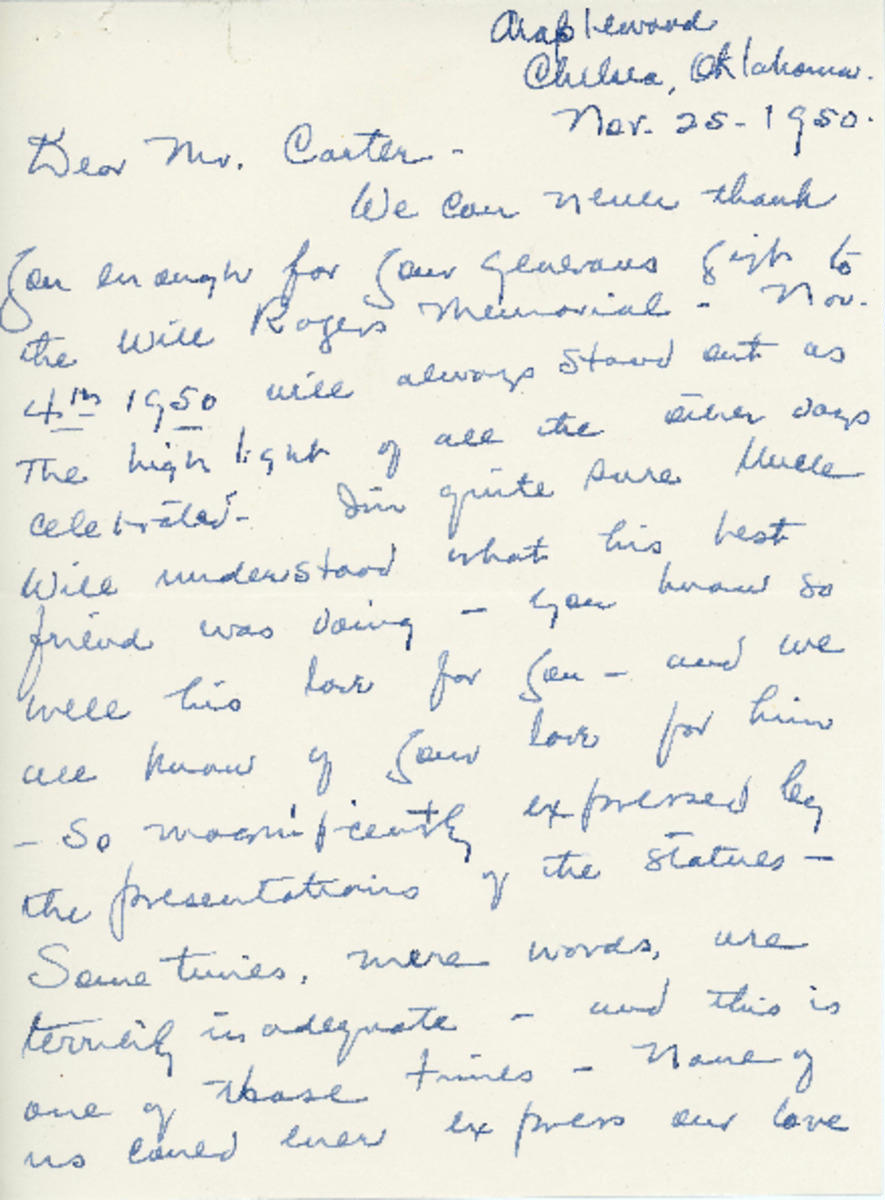 Maplewood
Chelsea, Oklahoma.
Nov. 25 - 1950.
Dear Mr. Carter -
We can never thank
you enough for your generous gift to
the Will Rogers Memorial - Nov.
4th 1950 will always stand out as
The high light of all the other days
celebrated - I'm quite sure Uncle
Will understood what his best
friend was doing - you know so
well his love for you - and we
all know of your love for him
- So magnificently expressed by
the presentations of the statues -
Sometimes, mere words, are
terribly inadequate - and this is
one of those times - None of
us could ever express our love